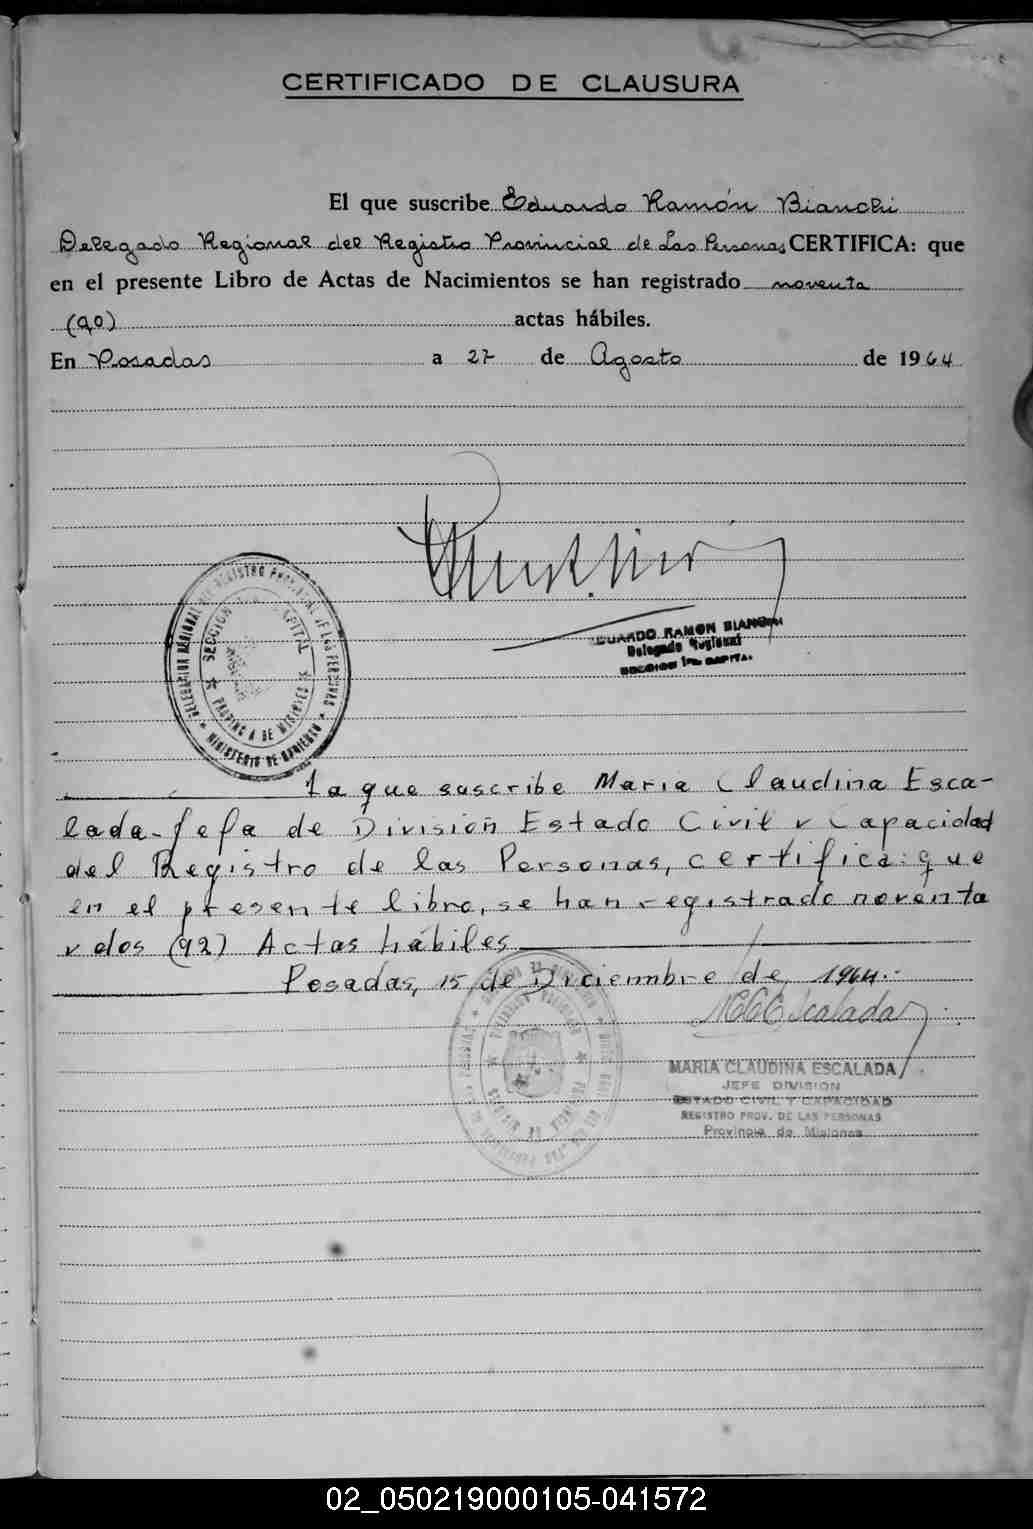 CERTIFICADO DE CLAUSURA
El que suscribe Eduardo Ramón Bianchi
Delegado Regional del Registro Provincial de Las Personas CERTIFICA: que
en el presente Libro de Actas de Nacimientos se han registrado noventa
(90) actas hábiles.
En Posadas a 27 de Agosto de 1964
DELEGACION REGIONAL DEL REGISTRO PROVINCIAL DE LAS PERSONAS
SECCION CAPITAL
PROVINCIA DE MISIONES
MINISTERIO DE GOBIERNO
EDUARDO RAMON BIANCHI
Delegado Regional
SECCION 1ra. CAPITAL
La que suscribe Maria Claudina Esca-
lada-Jefa de División Estado Civil y Capacidad
del Registro de las Personas, certifica: que
en el presente libro, se han registrado noventa
y dos (92) Actas hábiles
Posadas, 15 de Diciembre de 1964.-
MCEscalada
MARIA CLAUDINA ESCALADA
JEFE DIVISION
ESTADO CIVIL Y CAPACIDAD
REGISTRO PROV. DE LAS PERSONAS
Provincia de Misiones
02_050219000105-041572